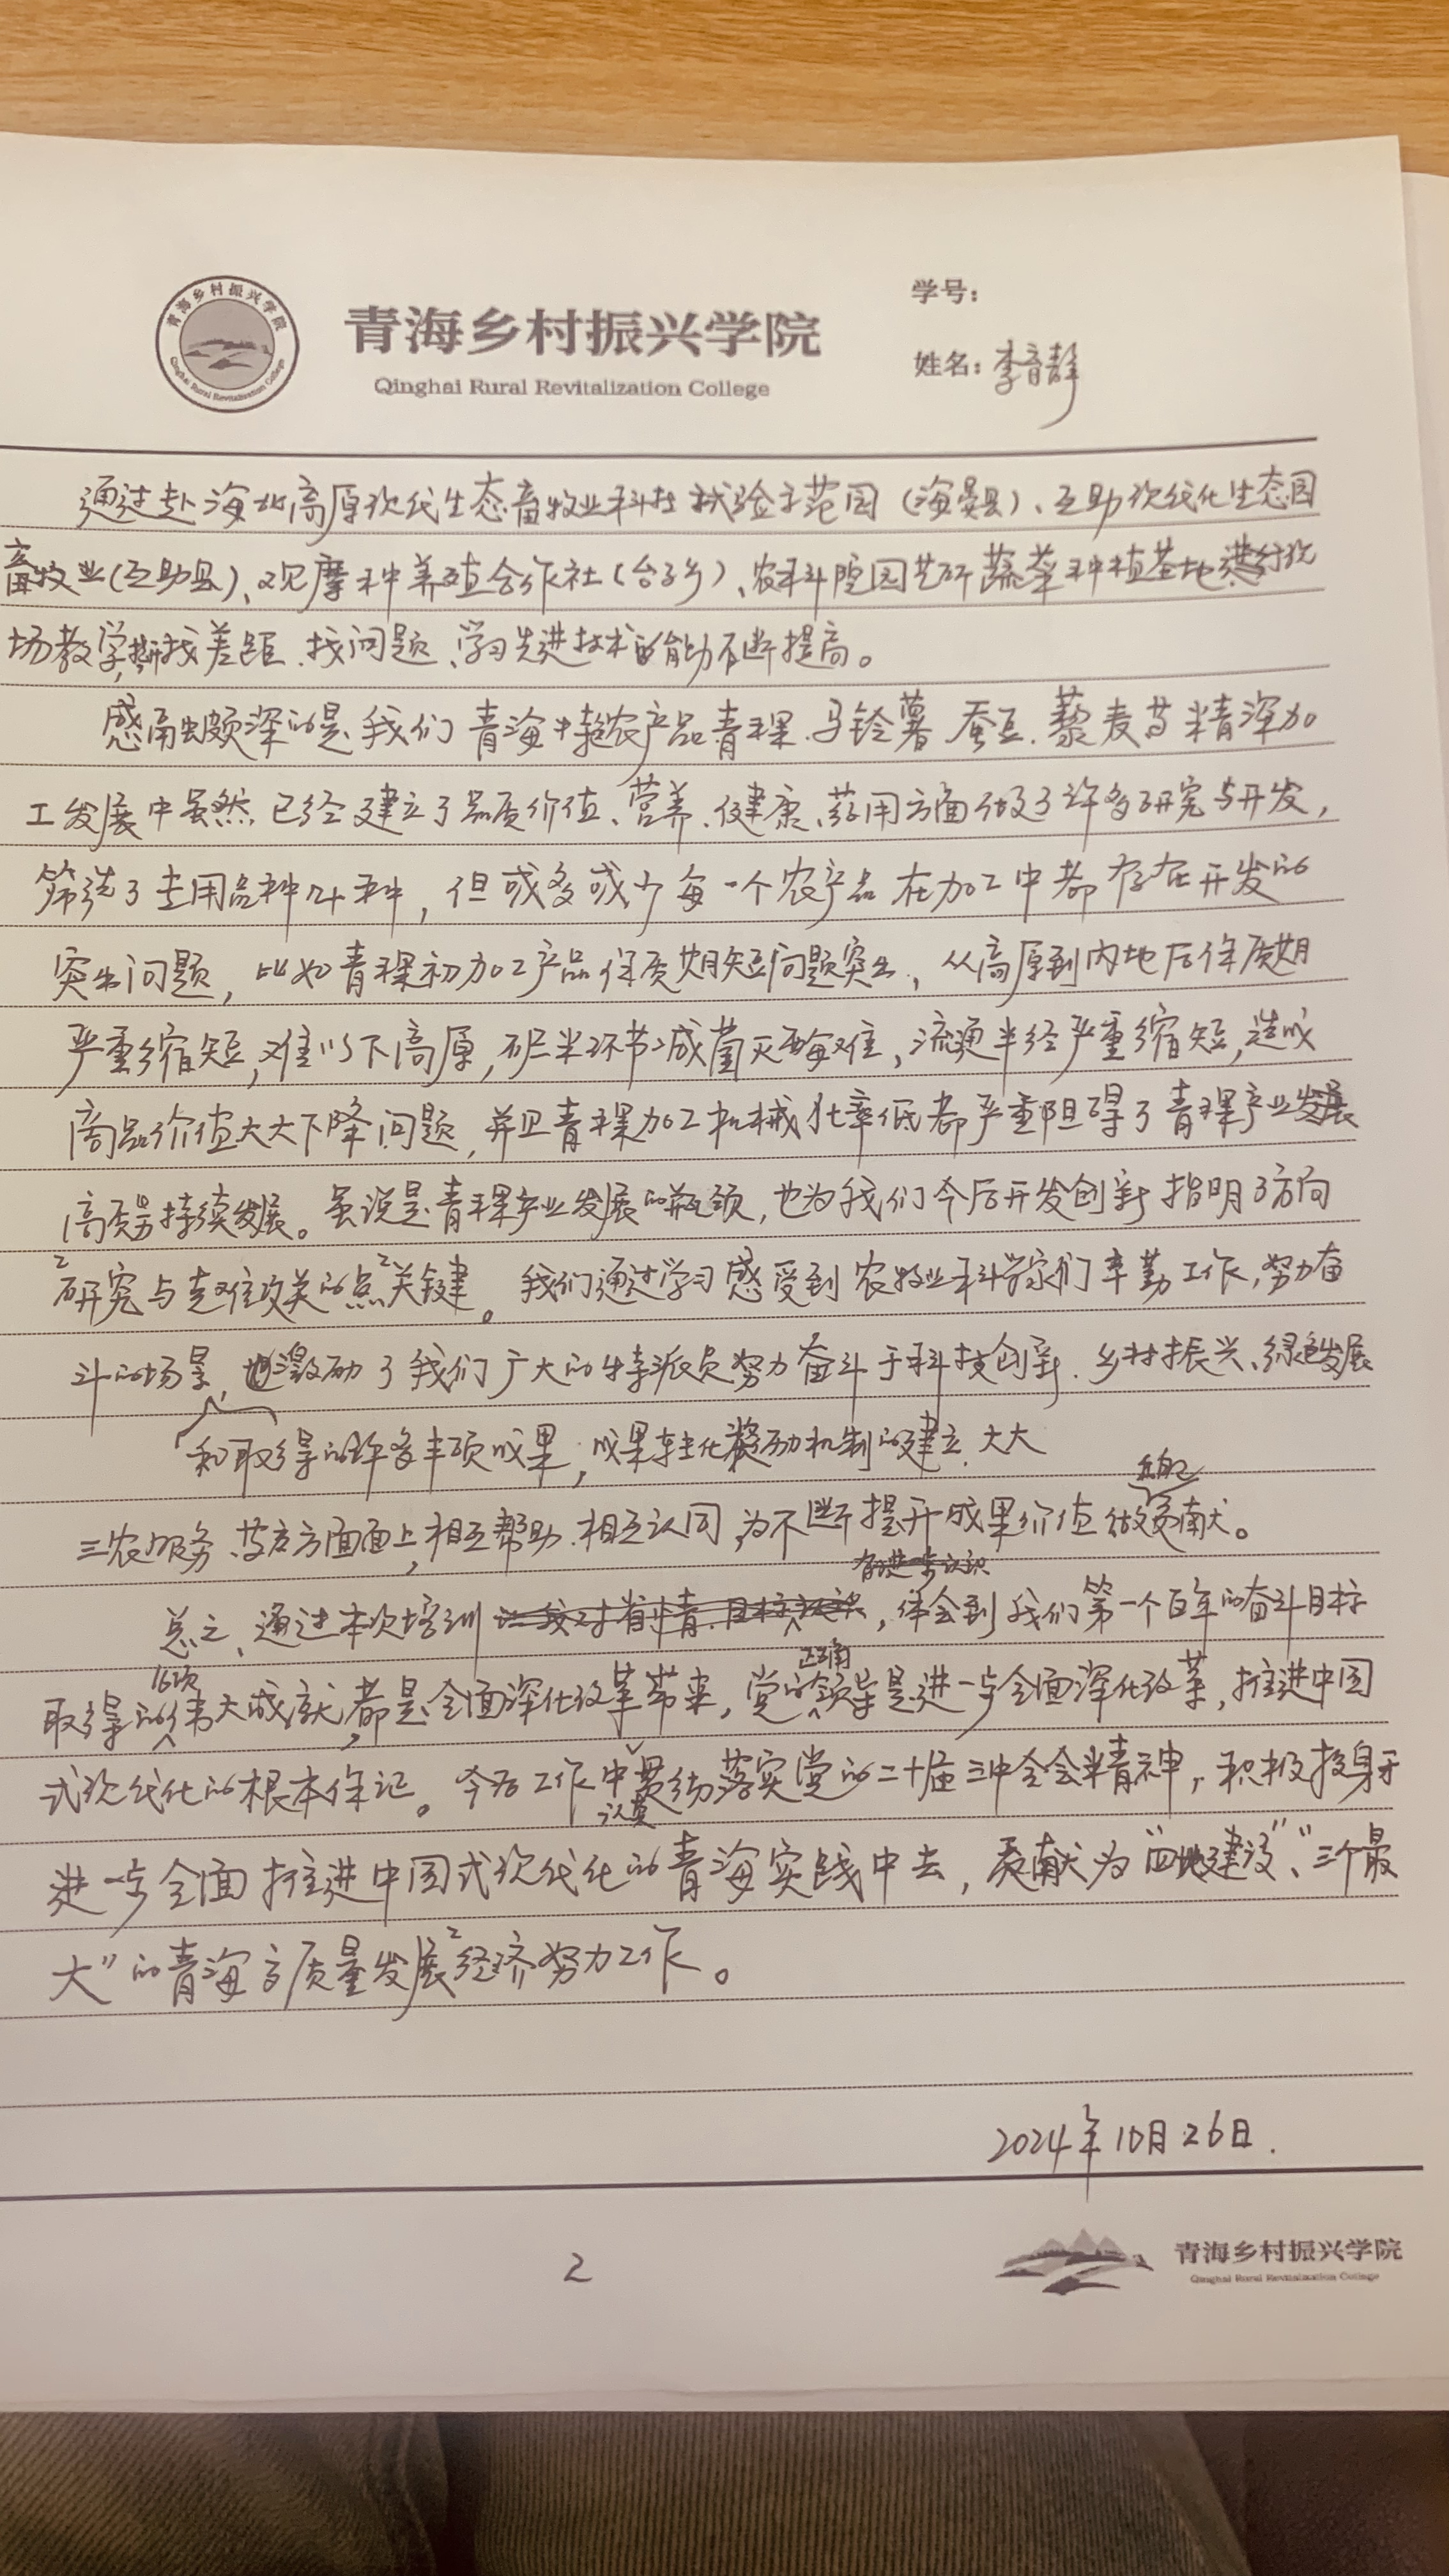 青海乡村振兴学院
Qinghai Rural Revitalization College
青海乡村振兴学院
Qinghai Rural Revitalization College
学号：
姓名：李音静
通过赴海北高原现代生态畜牧业科技试验示范园（海晏县）、互助现代化生态园
畜牧业（互助县）、观摩种养殖合作社（台子乡）、农科院园艺所蔬菜种植基地进行现
场教学，找差距、找问题、学习先进技术的能力不断提高。
感触颇深的是我们青海农产品青稞、马铃薯、蚕豆、藜麦等精深加
工发展中虽然已经建立了品质价值、营养、健康、药用方面做了许多研究与开发，
筛选了专用品种24种，但或多或少每一个农产品在加工中都存在开发的
突出问题，比如青稞初加工产品保质期短问题突出，从高原到内地后保质期
严重缩短，难以下高原，碾米环节减菌灭酶难，流通半径严重缩短，造成
商品价值大大下降问题，并且青稞加工机械化率低都严重阻碍了青稞产业发展
高质量持续发展。虽说是青稞产业发展的瓶颈，也为我们今后开发创新指明了方向
研究与克难攻关的点关键。我们通过学习感受到农牧业科学家们辛勤工作，努力奋
斗的场景，也激励了我们广大的特派员努力奋斗于科技创新、乡村振兴、绿色发展
和取得的许多丰硕成果，成果转化奖励机制的建立，大大
三农服务、等方方面面上，相互帮助、相互认同，为不断提升成果价值做贡献。
有进一步认识
总之，通过本次培训，体会到我们第一个百年的奋斗目标
正确
取得的伟大成就，都是全面深化改革带来，党的领导是进一步全面深化改革，推进中国
式现代化的根本保证。今后工作中贯彻落实党的二十届三中全会精神，积极投身于
认真
进一步全面推进中国式现代化的青海实践中去，贡献为“四地建设”、“三个最
大”的青海高质量发展经济努力工作。
2024年10月26日.
2
青海乡村振兴学院
Qinghai Rural Revitalization College